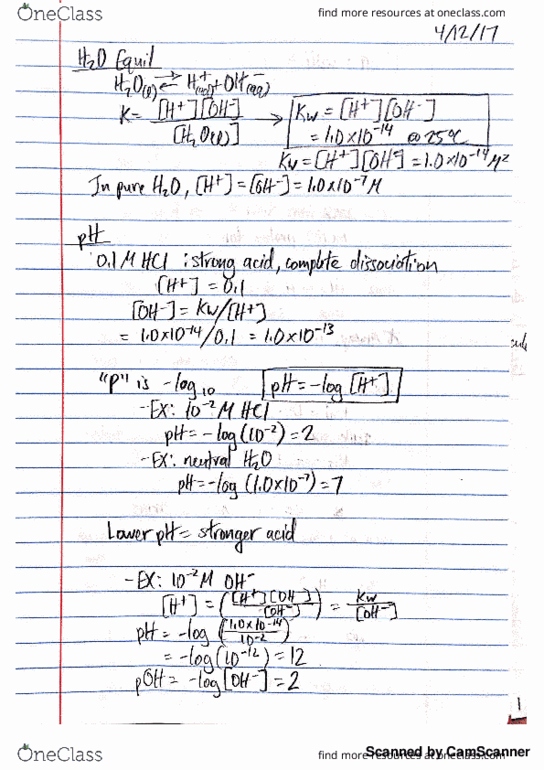 OneClass
find more resources at oneclass.com
4/12/17
H₂O Equil
H₂O(l) ⇌ H⁺(aq) + OH⁻(aq)
K = [H⁺][OH⁻] / [H₂O(l)] → Kw = [H⁺][OH⁻]
= 1.0×10⁻¹⁴ @ 25°C
Kw = [H⁺][OH⁻] = 1.0×10⁻¹⁴ M²
In pure H₂O, [H⁺] = [OH⁻] = 1.0×10⁻⁷ M
pH
0.1 M HCl : strong acid, complete dissociation
[H⁺] = 0.1
[OH⁻] = Kw/[H⁺]
= 1.0×10⁻¹⁴/0.1 = 1.0×10⁻¹³
"p" is -log₁₀ pH = -log [H⁺]
- EX: 10⁻² M HCl
pH = -log(10⁻²) = 2
- EX: neutral H₂O
pH = -log (1.0×10⁻⁷) = 7
Lower pH = stronger acid
- EX: 10⁻² M OH⁻
[H⁺] = ([H⁺][OH⁻] / [OH⁻]) = Kw / [OH⁻]
pH = -log (1.0×10⁻¹⁴ / 10⁻²)
= -log(10⁻¹²) = 12
pOH = -log[OH⁻] = 2
1
OneClass
find more resources at oneclass.com
Scanned by CamScanner